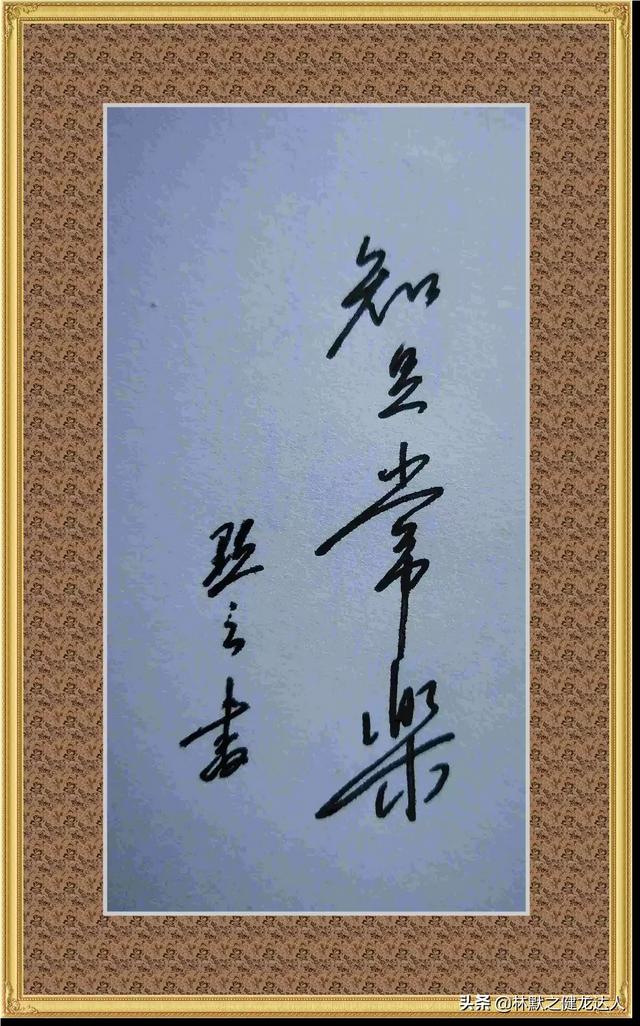 知足常樂
默之書
头条 @林默之健龙达人